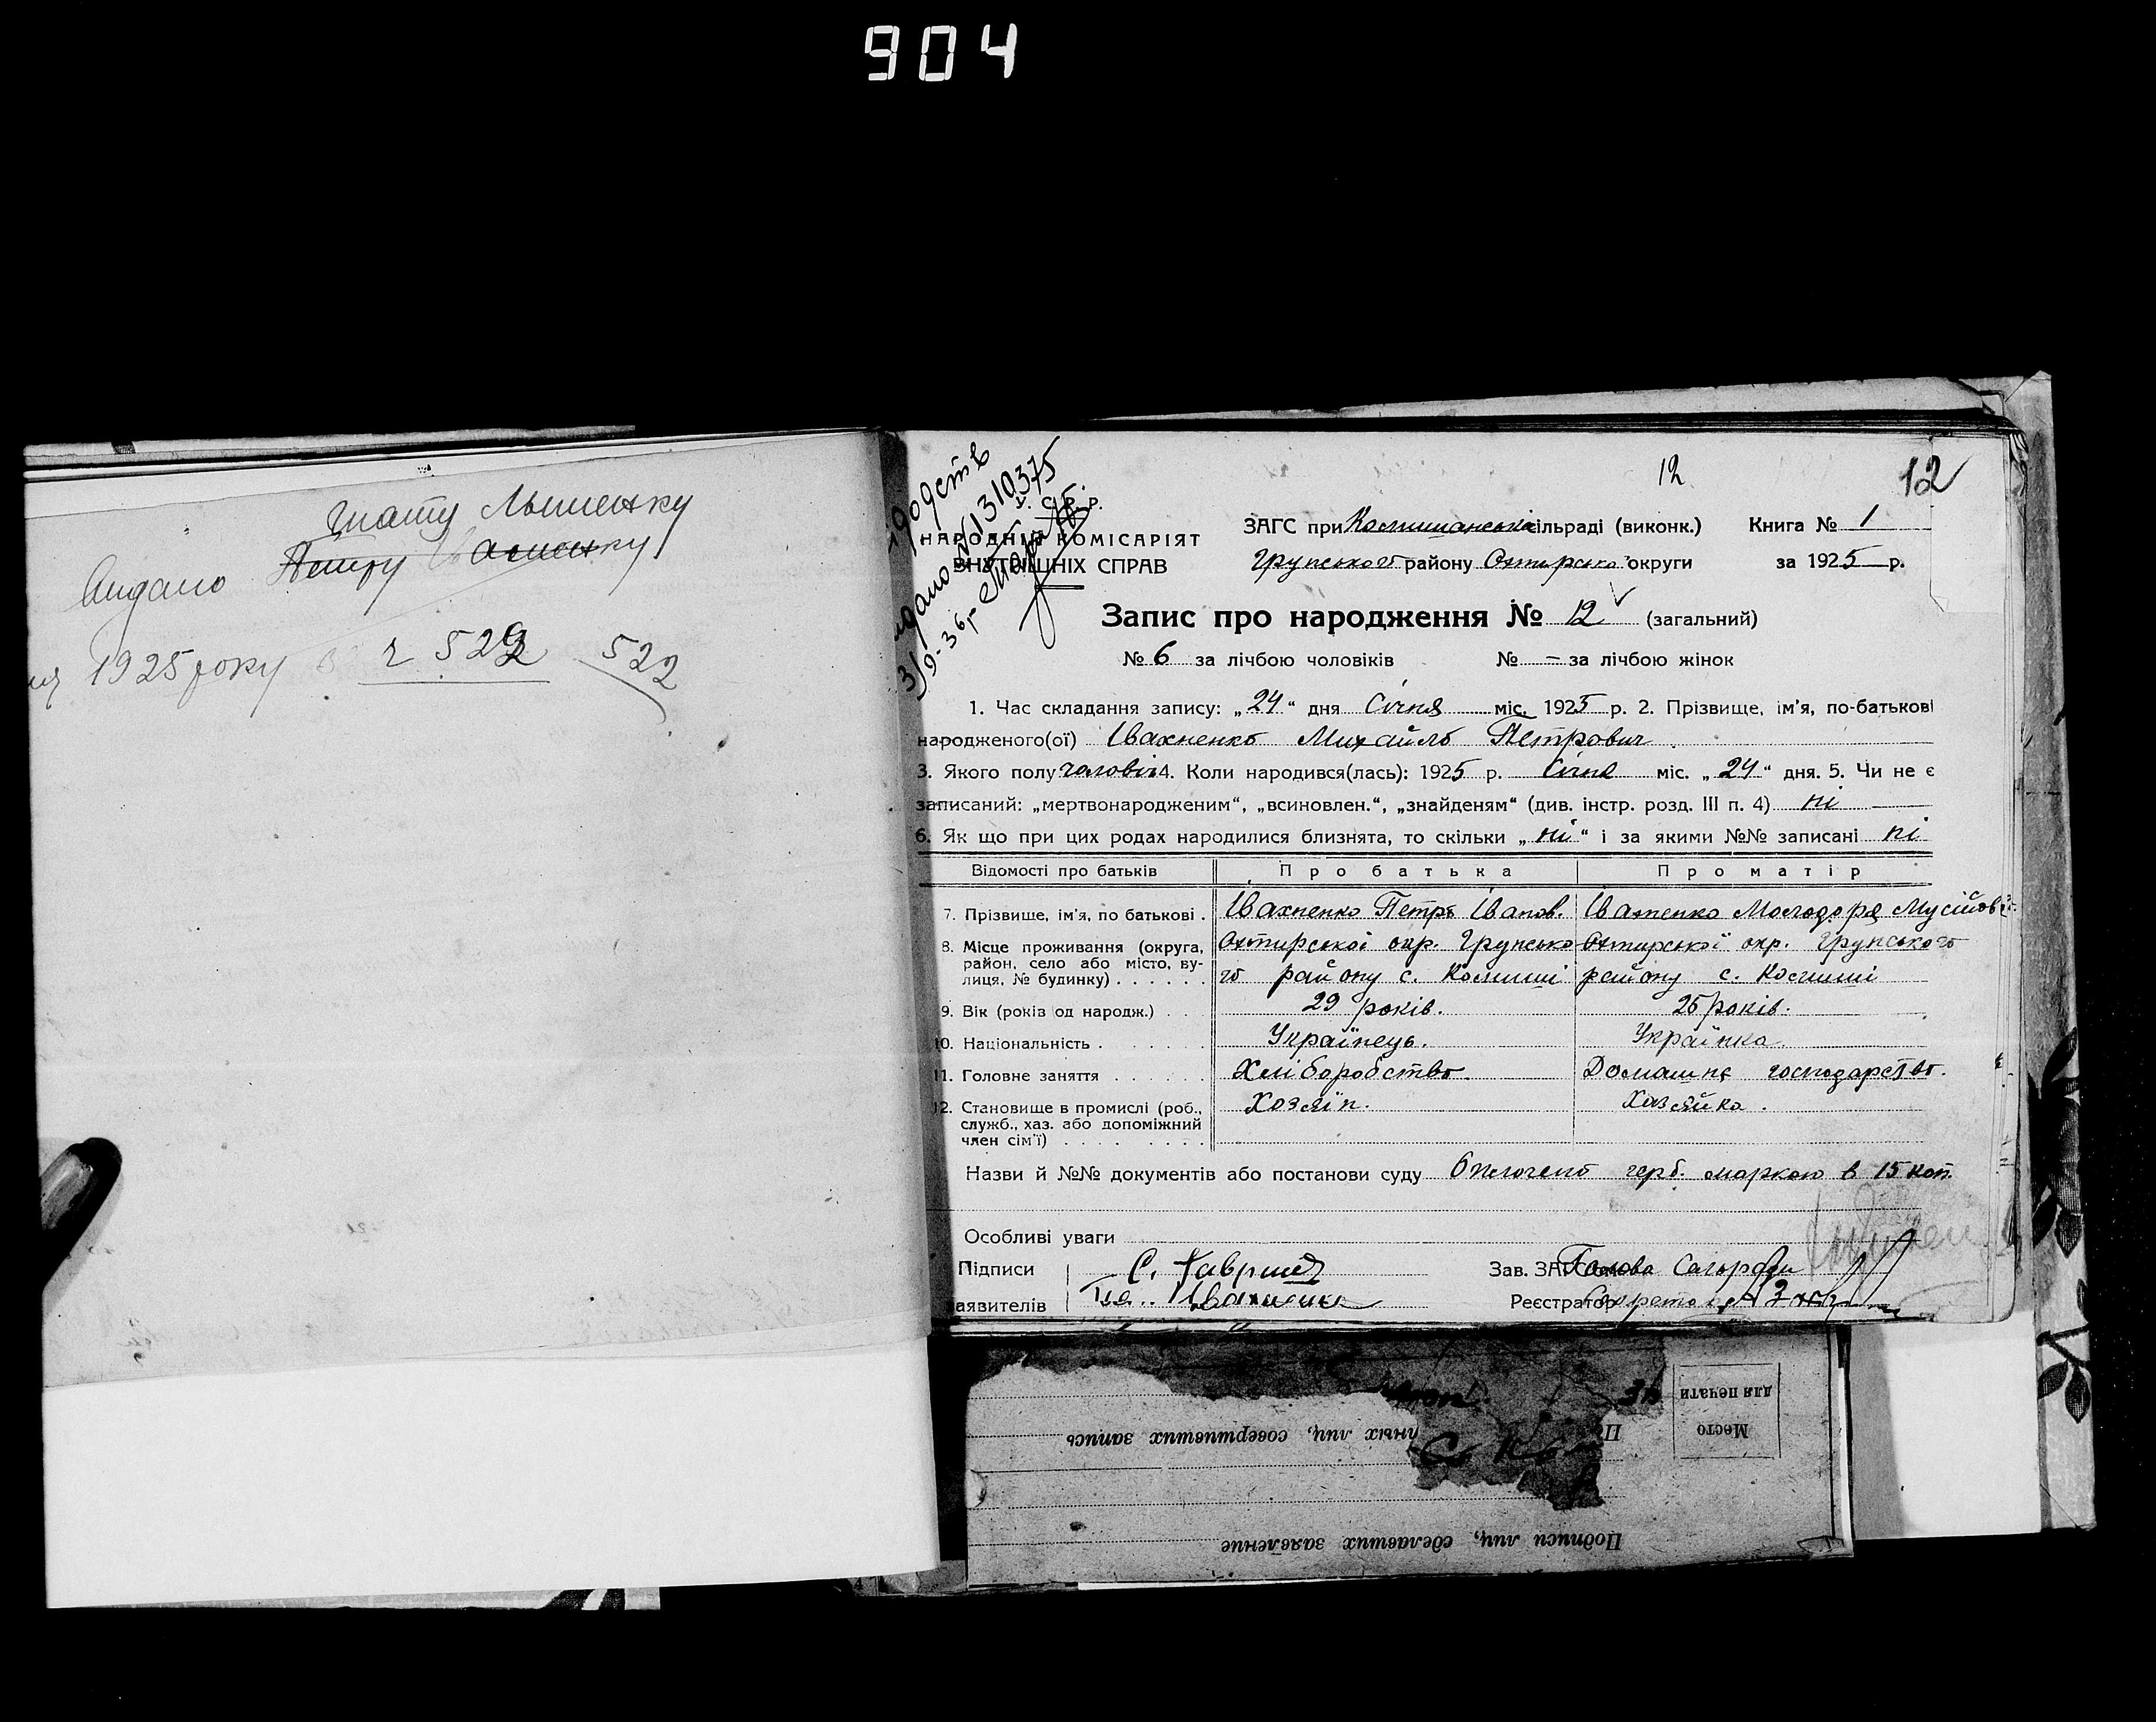 904
Гнату Лышенку
Видано Петру Івахненку
1925 року в г 522 522
12
12
Свідоцтв
видано № 1310375
31/9-36 г.
У. С. Р. Р.
НАРОДНІЙ КОМІСАРІЯТ
ВНУТРІШНІХ СПРАВ
ЗАГС при Комишанській сільраді (виконк.) Книга № 1
Грунського району Охтирсько округи за 1925 р.
Запис про народження № 12 (загальний)
№ 6 за лічбою чоловіків № — за лічбою жінок
1. Час складання запису: „24“ дня Січня міс. 1925 р. 2. Прізвище, ім'я, по-батькові
народженого(ої) Івахненко Михайло Петрович
3. Якого полу чоловіч 4. Коли народився(лась): 1925 р. Січня міс. „24“ дня. 5. Чи не є
записаний: „мертвонародженим“, „всиновлен.“, „знайденям“ (див. інстр. розд. III п. 4) ні
6. Як що при цих родах народилися близнята, то скільки „ні“ і за якими №№ записані ні
Відомості про батьків Про батька Про матір
7. Прізвище, ім'я, по батькові . Івахненко Петро Іванов. Івахненко Мусійов
8. Місце проживання (округа, район, село або місто, вулиця, № будинку) . . . . . . Охтирської окр. Грунсько Охтирської окр. Грунського
го району с. Комиші району с. Комиші
9. Вік (років од народж.) . . . 29 років. 25 років.
10. Національність . . . . . . . Українець. Українка
11. Головне заняття . . . . . . Хліборобство. Домашнє господарство.
12. Становище в промислі (роб., служб., хаз. або допоміжний член сім'ї) . . . . . . . . . Хозяїн. Хазяйка.
Назви й №№ документів або постанови суду Оплочено герб. маркою в 15 коп.
Особливі уваги
Підписи С. Гавриш Зав. ЗАГСом Голова Сільради
заявителів Івахненко Реєстратор Секретар
Место
для печати
лных лиц, совершивших запись
Подписи лиц, сделавших заявление